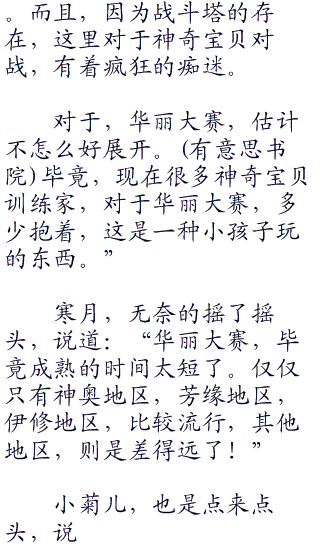 。而且，因为战斗塔的存
在，这里对于神奇宝贝对
战，有着疯狂的痴迷。
对于，华丽大赛，估计
不怎么好展开。(有意思书
院)毕竟，现在很多神奇宝贝
训练家，对于华丽大赛，多
少抱着，这是一种小孩子玩
的东西。”
寒月，无奈的摇了摇
头，说道：“华丽大赛，毕
竟成熟的时间太短了。仅仅
只有神奥地区，芳缘地区，
伊修地区，比较流行，其他
地区，则是差得远了！”
小菊儿，也是点来点
头，说